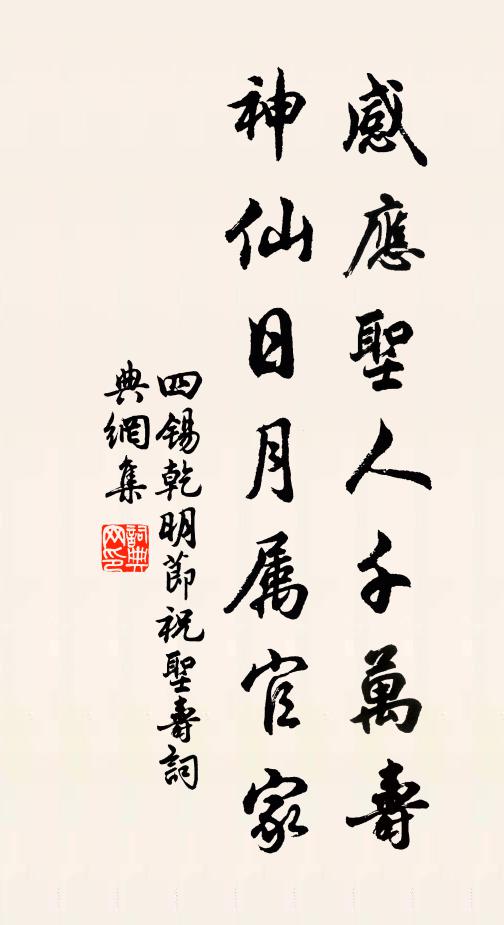 感應聖人千萬壽
神仙日月属官家
四錫乾明節祝聖壽詞
典網集
詞典網印